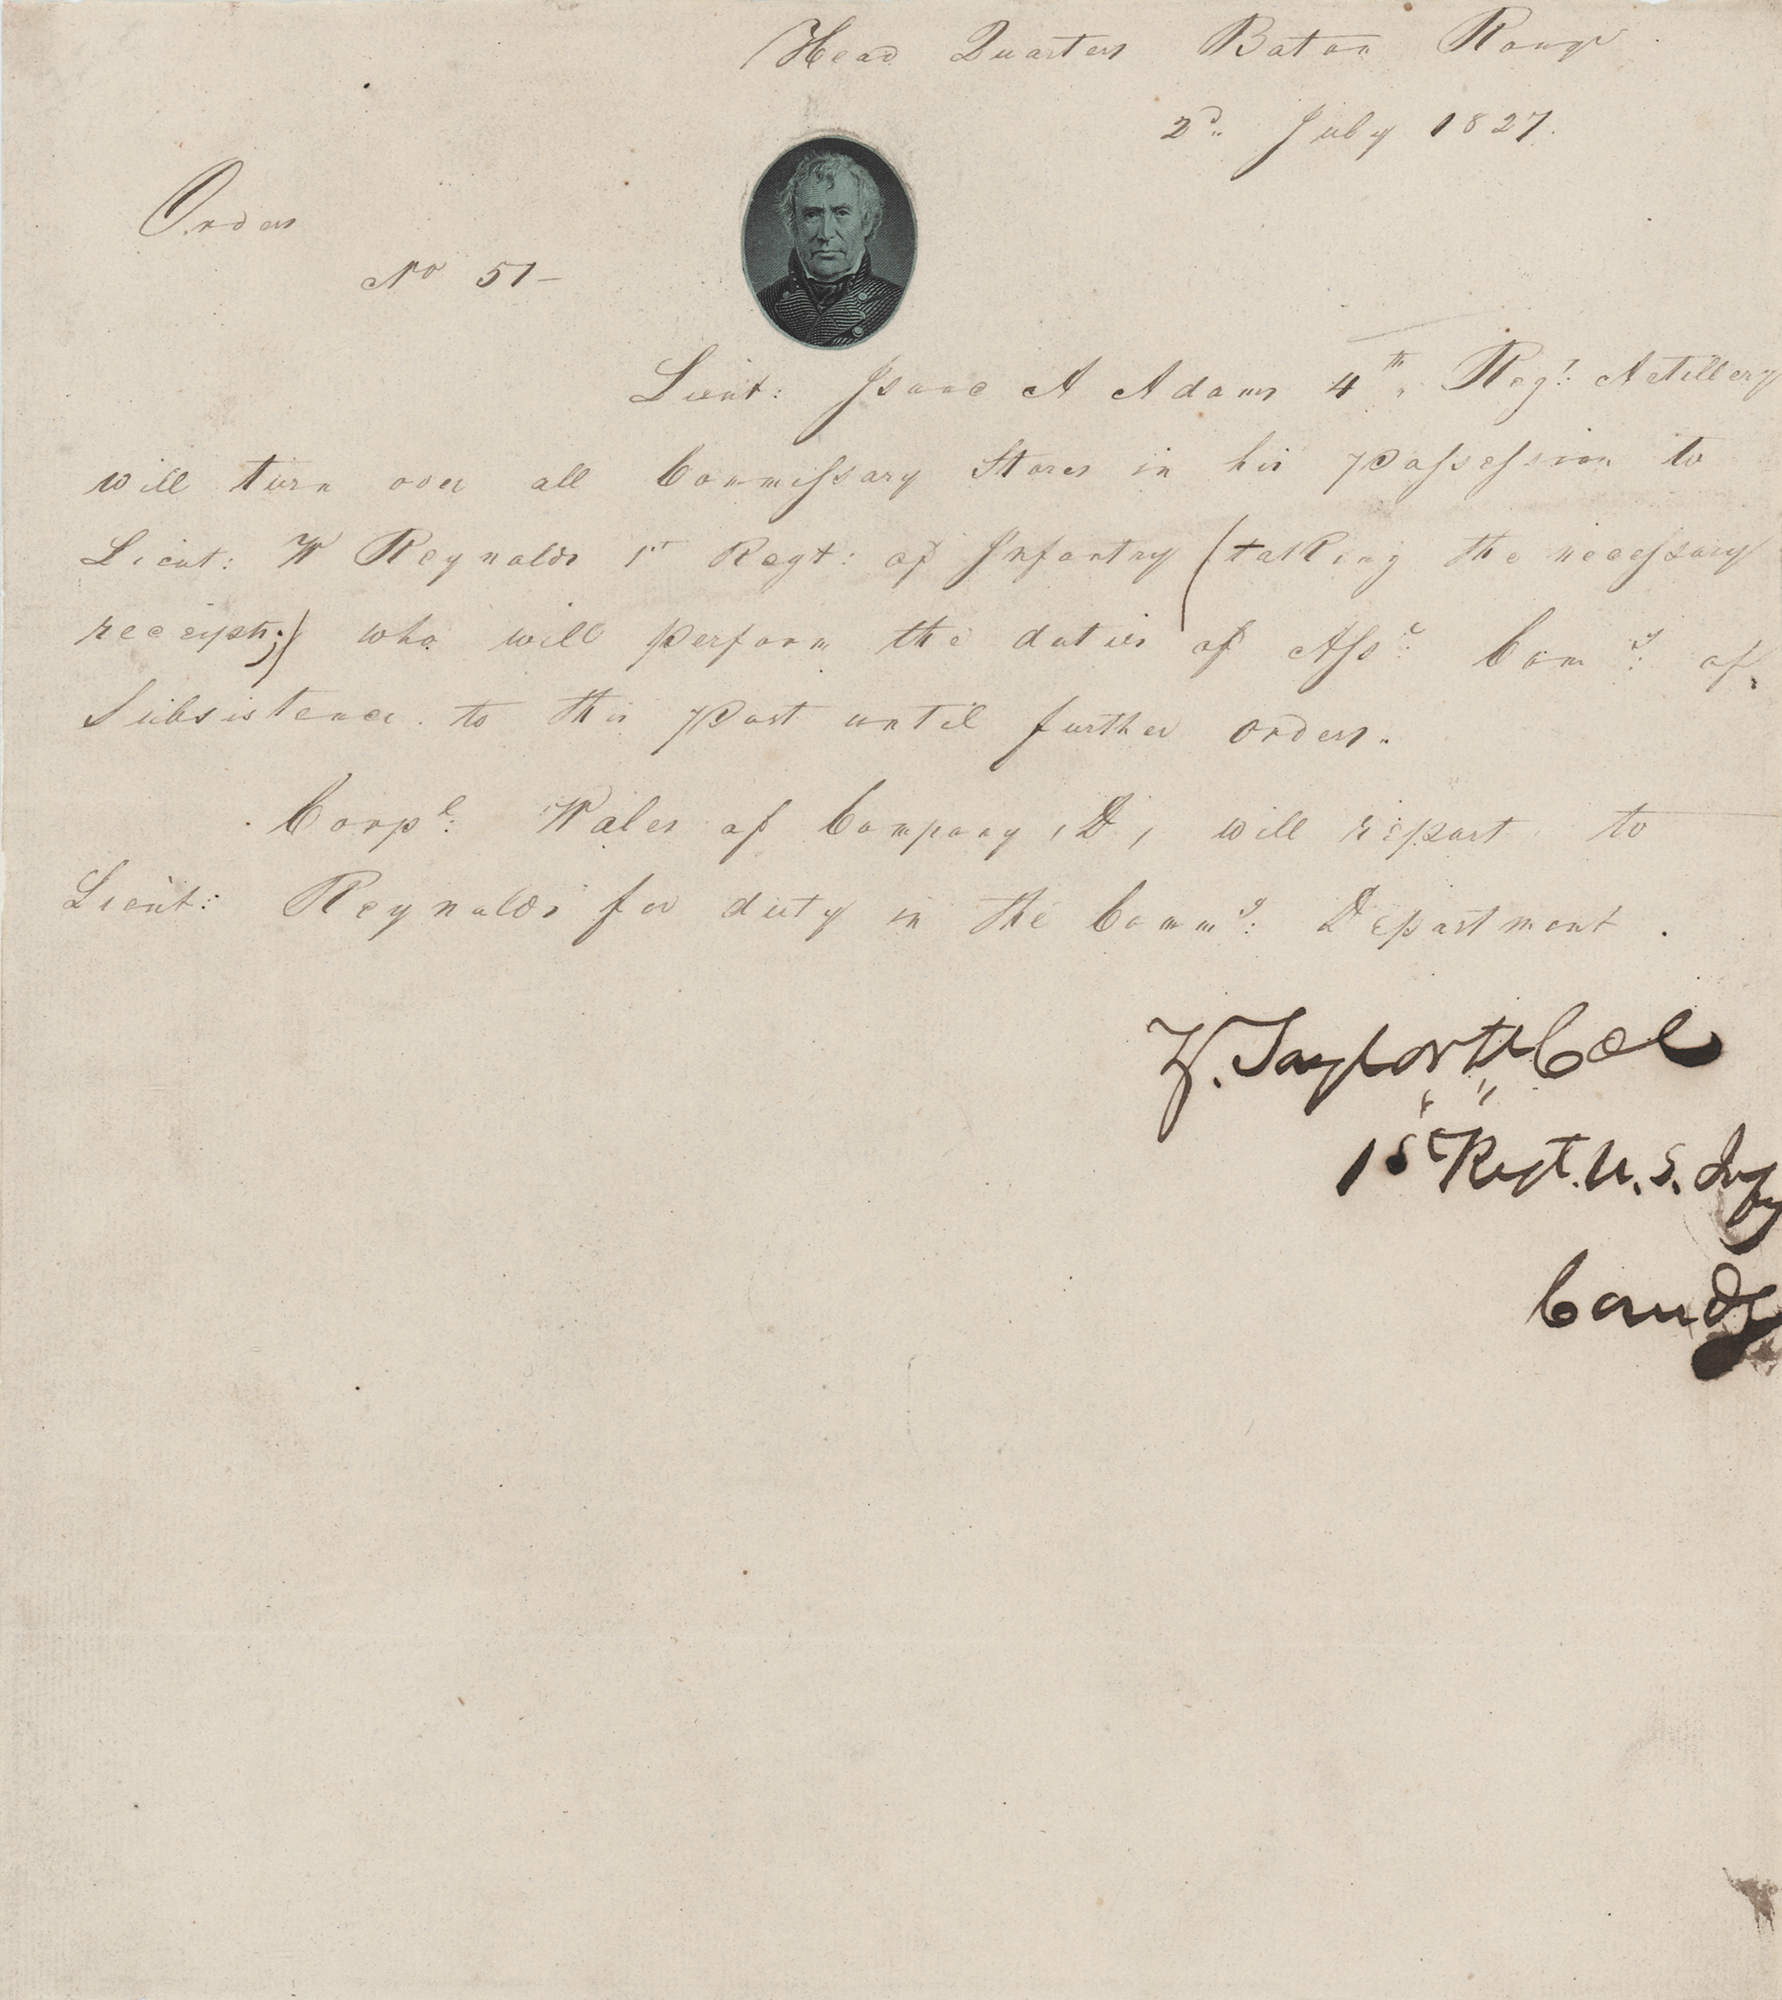 Head Quarters Baton Rouge
2d. July 1827.
Order
No 51-
Lieut: Isaac A Adams 4th. Regt: Artillery
will turn over all Commissary Stores in his possession to
Lieut: W Reynolds 1st Regt: of Infantry (taking the necessary
receipts;) who will perform the duties of Asst: Comy: of
Subsistence to this post until further orders.
Corpl: Wales of Company, D, will report to
Lieut: Reynolds for duty in the Commy: Department.
Z. Taylor Lt Col
1st Regt. U. S. Infy
Comdg